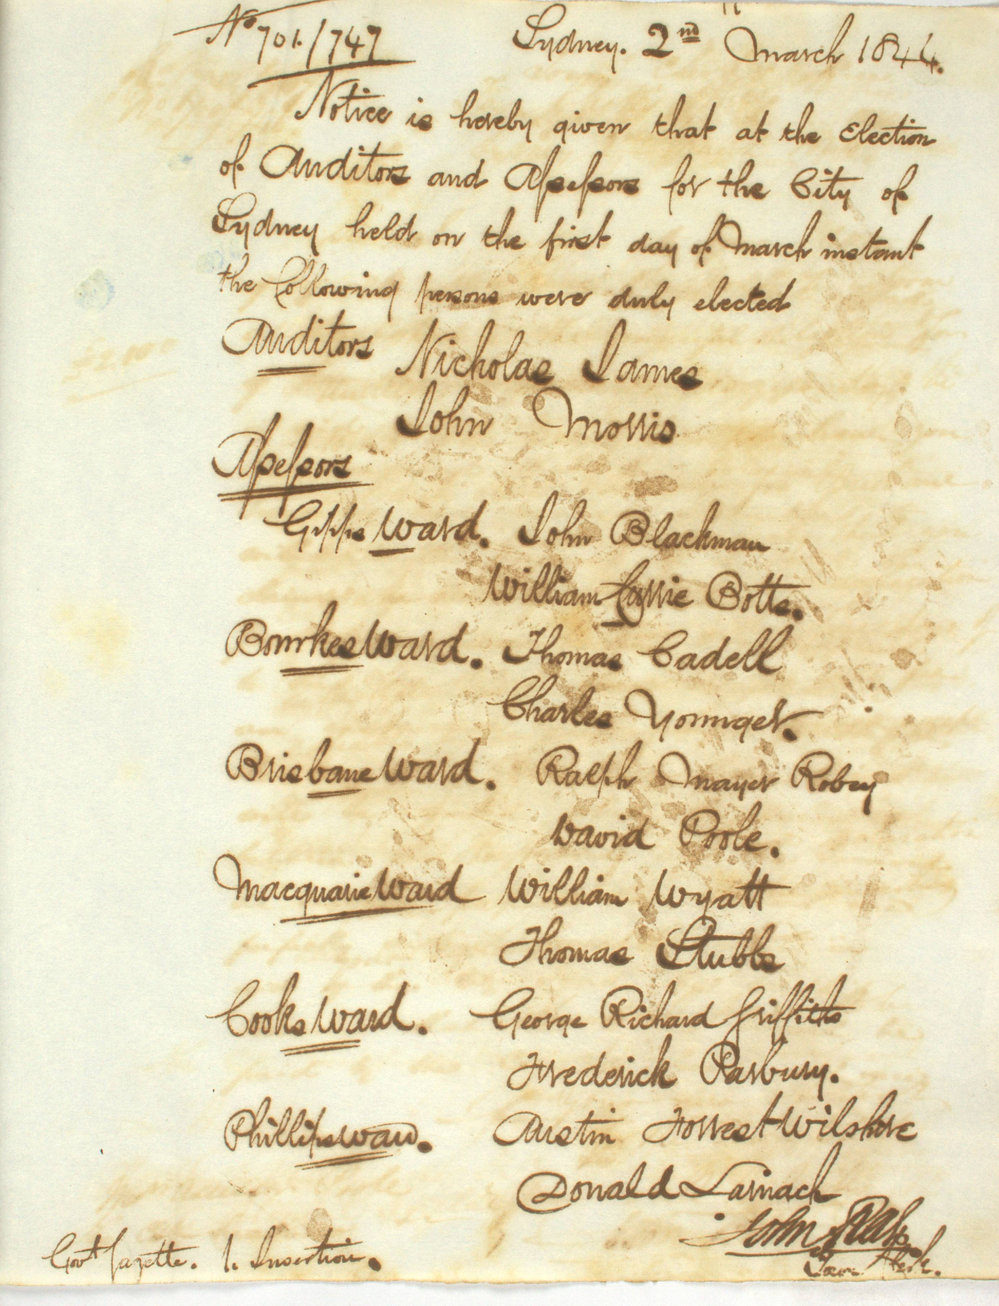 No 701/747 Sydney. 2nd March 1844.
Notice is hereby given that at the Election
of Auditors and Assessors for the City of
Sydney held on the first day of March instant
the following persons were duly elected
Auditors Nicholas James
John Morris
Assessors
Gipps Ward. John Blackman
William Botts.
Bourkes Ward. Thomas Cadell
Charles Younger.
Brisbane Ward. Ralph Mayer Robey
David Poole.
Macquarie Ward William Wyatt
Thomas Stubbs
Cooks Ward. George Richard Griffiths
Frederick Parbury.
Phillips Ward. Austin Forrest Wilshire
Donald Larnach
John
Govt Gazette. 1. Insertion. Town Clerk.